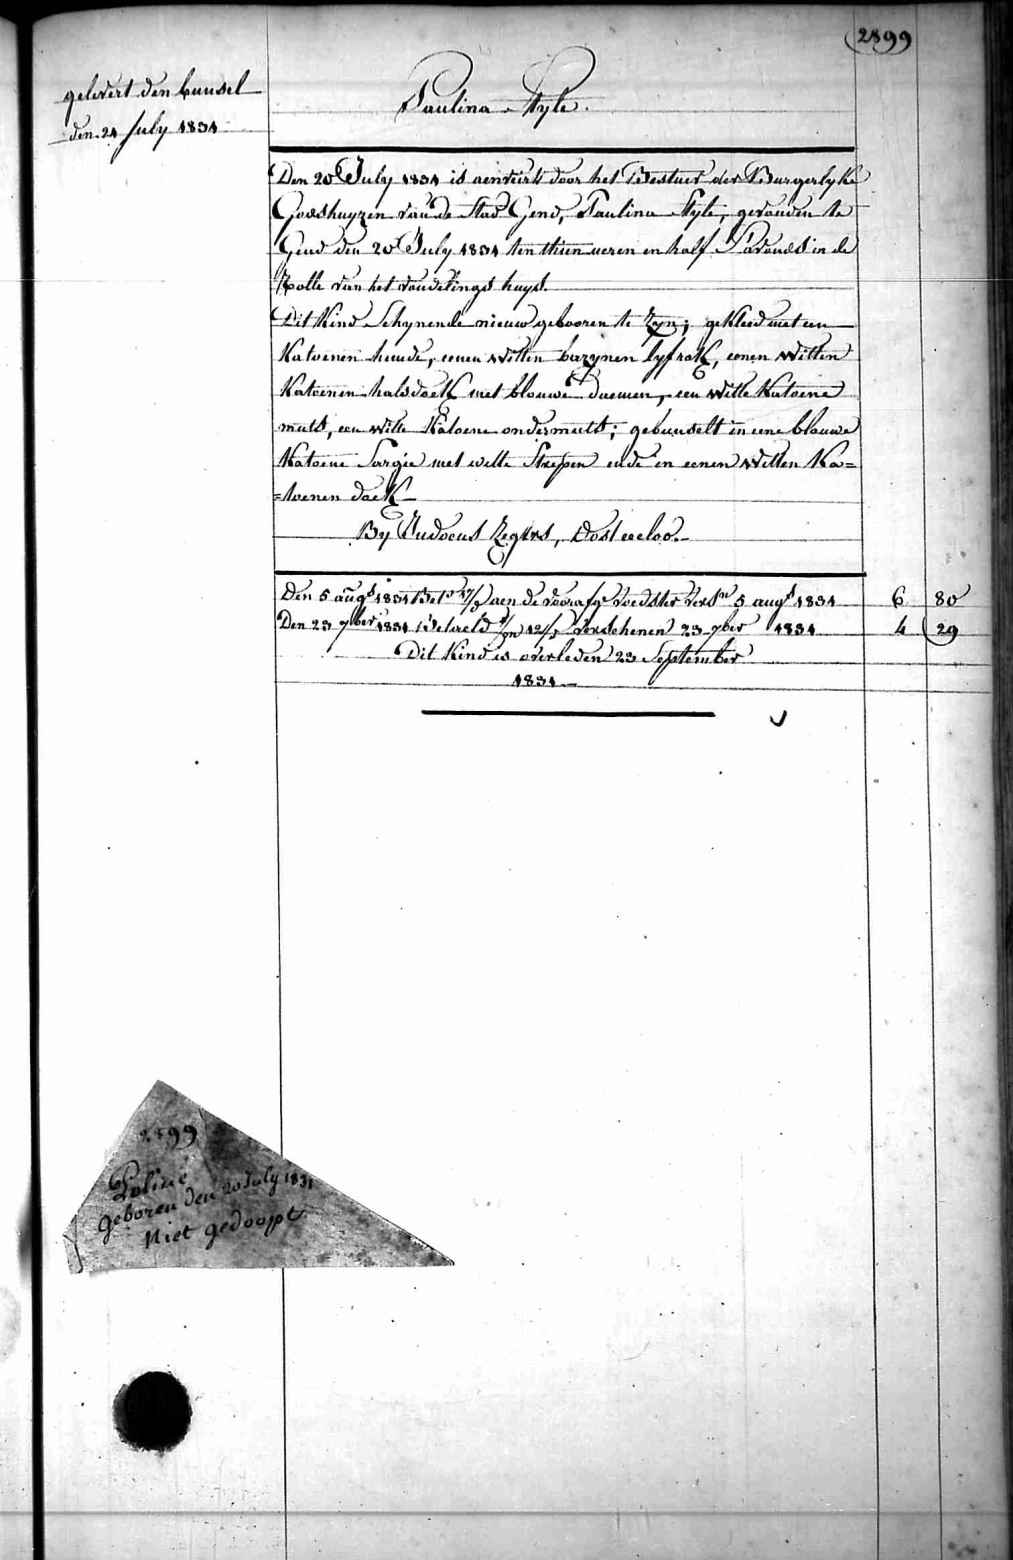 2899
gelevert den bunsel
den 24 July 1831
Paulina Style.
Den 20 July 1831 is aenveirt door het Bestuer der Burgerlyke
Godshuyzen van de Stad Gend, Paulina Style, gevonden te
Gend den 20 July 1831 ten thien ueren en half s'avonds in de
Rolle van het vondelings huys.
Dit Kind Schynende nieuw gebooren te Zyn; gekleed met een
Katoenen hemde, eenen witten bazynen lyfrok, eenen witten
Katoenen halsdoek met blouwe duemen, een witte Katoene
muts, een witte Katoene ondermuts; gebunselt in eene blouwe
Katoene Sargie met witte Strepen ende in eenen witten Ka=
=toenen doek
By Judocus Zegers, Oosteecloo.
Den 5 augt 1831 Bet. aen de voorafge. voedster 5 augt 1831 6 80
Den 23 7ber 1831 betaeld verschenen 23 7ber 1831 4 29
Dit Kind is overleden 23 September
1831
2899
Poline
geboren den 20 July 1831
Niet gedoopt